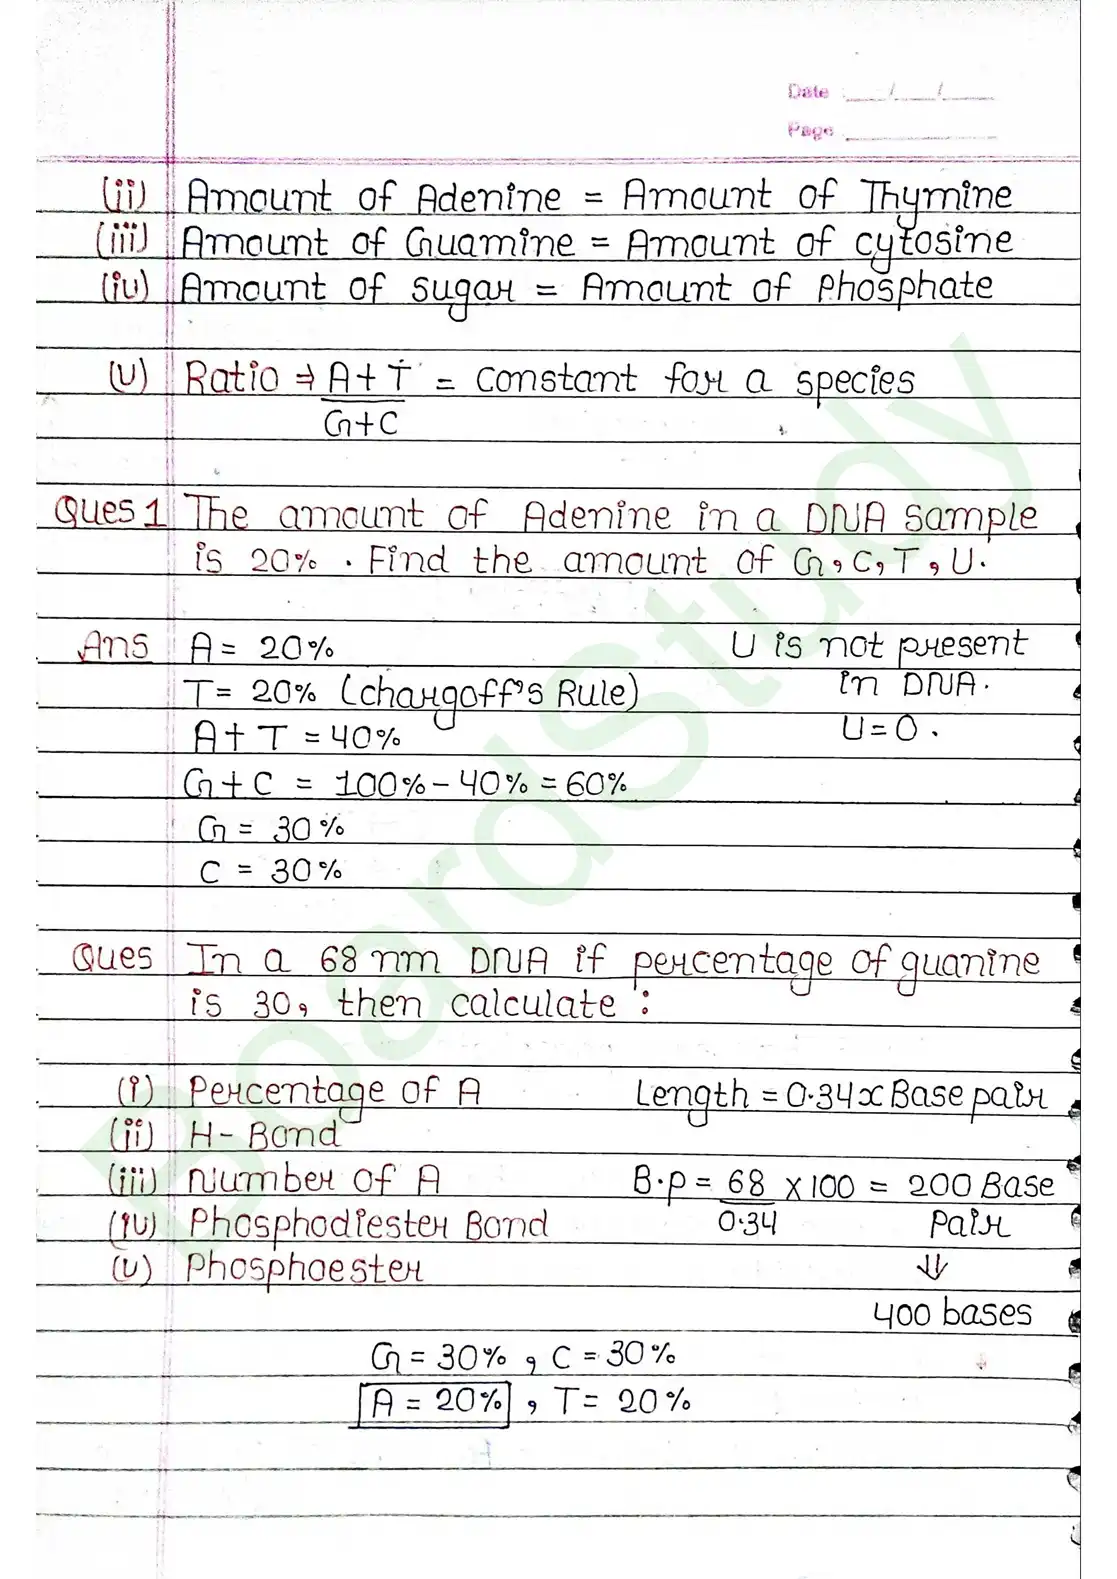 Date :___/___/___
Page
(ii) Amount of Adenine = Amount of Thymine
(iii) Amount of Guamine = Amount of cytosine
(iv) Amount of sugar = Amount of Phosphate
(v) Ratio ⇒ A+T = constant for a species
G+C
Ques 1 The amount of Adenine in a DNA sample
is 20% . Find the amount of G, C, T, U.
Ans A = 20% U is not present
T = 20% (chargoff's Rule) in DNA.
A+T = 40% U=0.
G+C = 100% - 40% = 60%
G = 30%
C = 30%
Ques In a 68 nm DNA if percentage of guanine
is 30, then calculate :
(i) Percentage of A Length = 0.34 x Base pair
(ii) H-Bond
(iii) Number of A B.P = 68 x 100 = 200 Base
(iv) Phosphodiester Bond 0.34 Pair
(v) Phosphoester ⇓
400 bases
G = 30%, C = 30%
A = 20%, T = 20%
BoardStudy